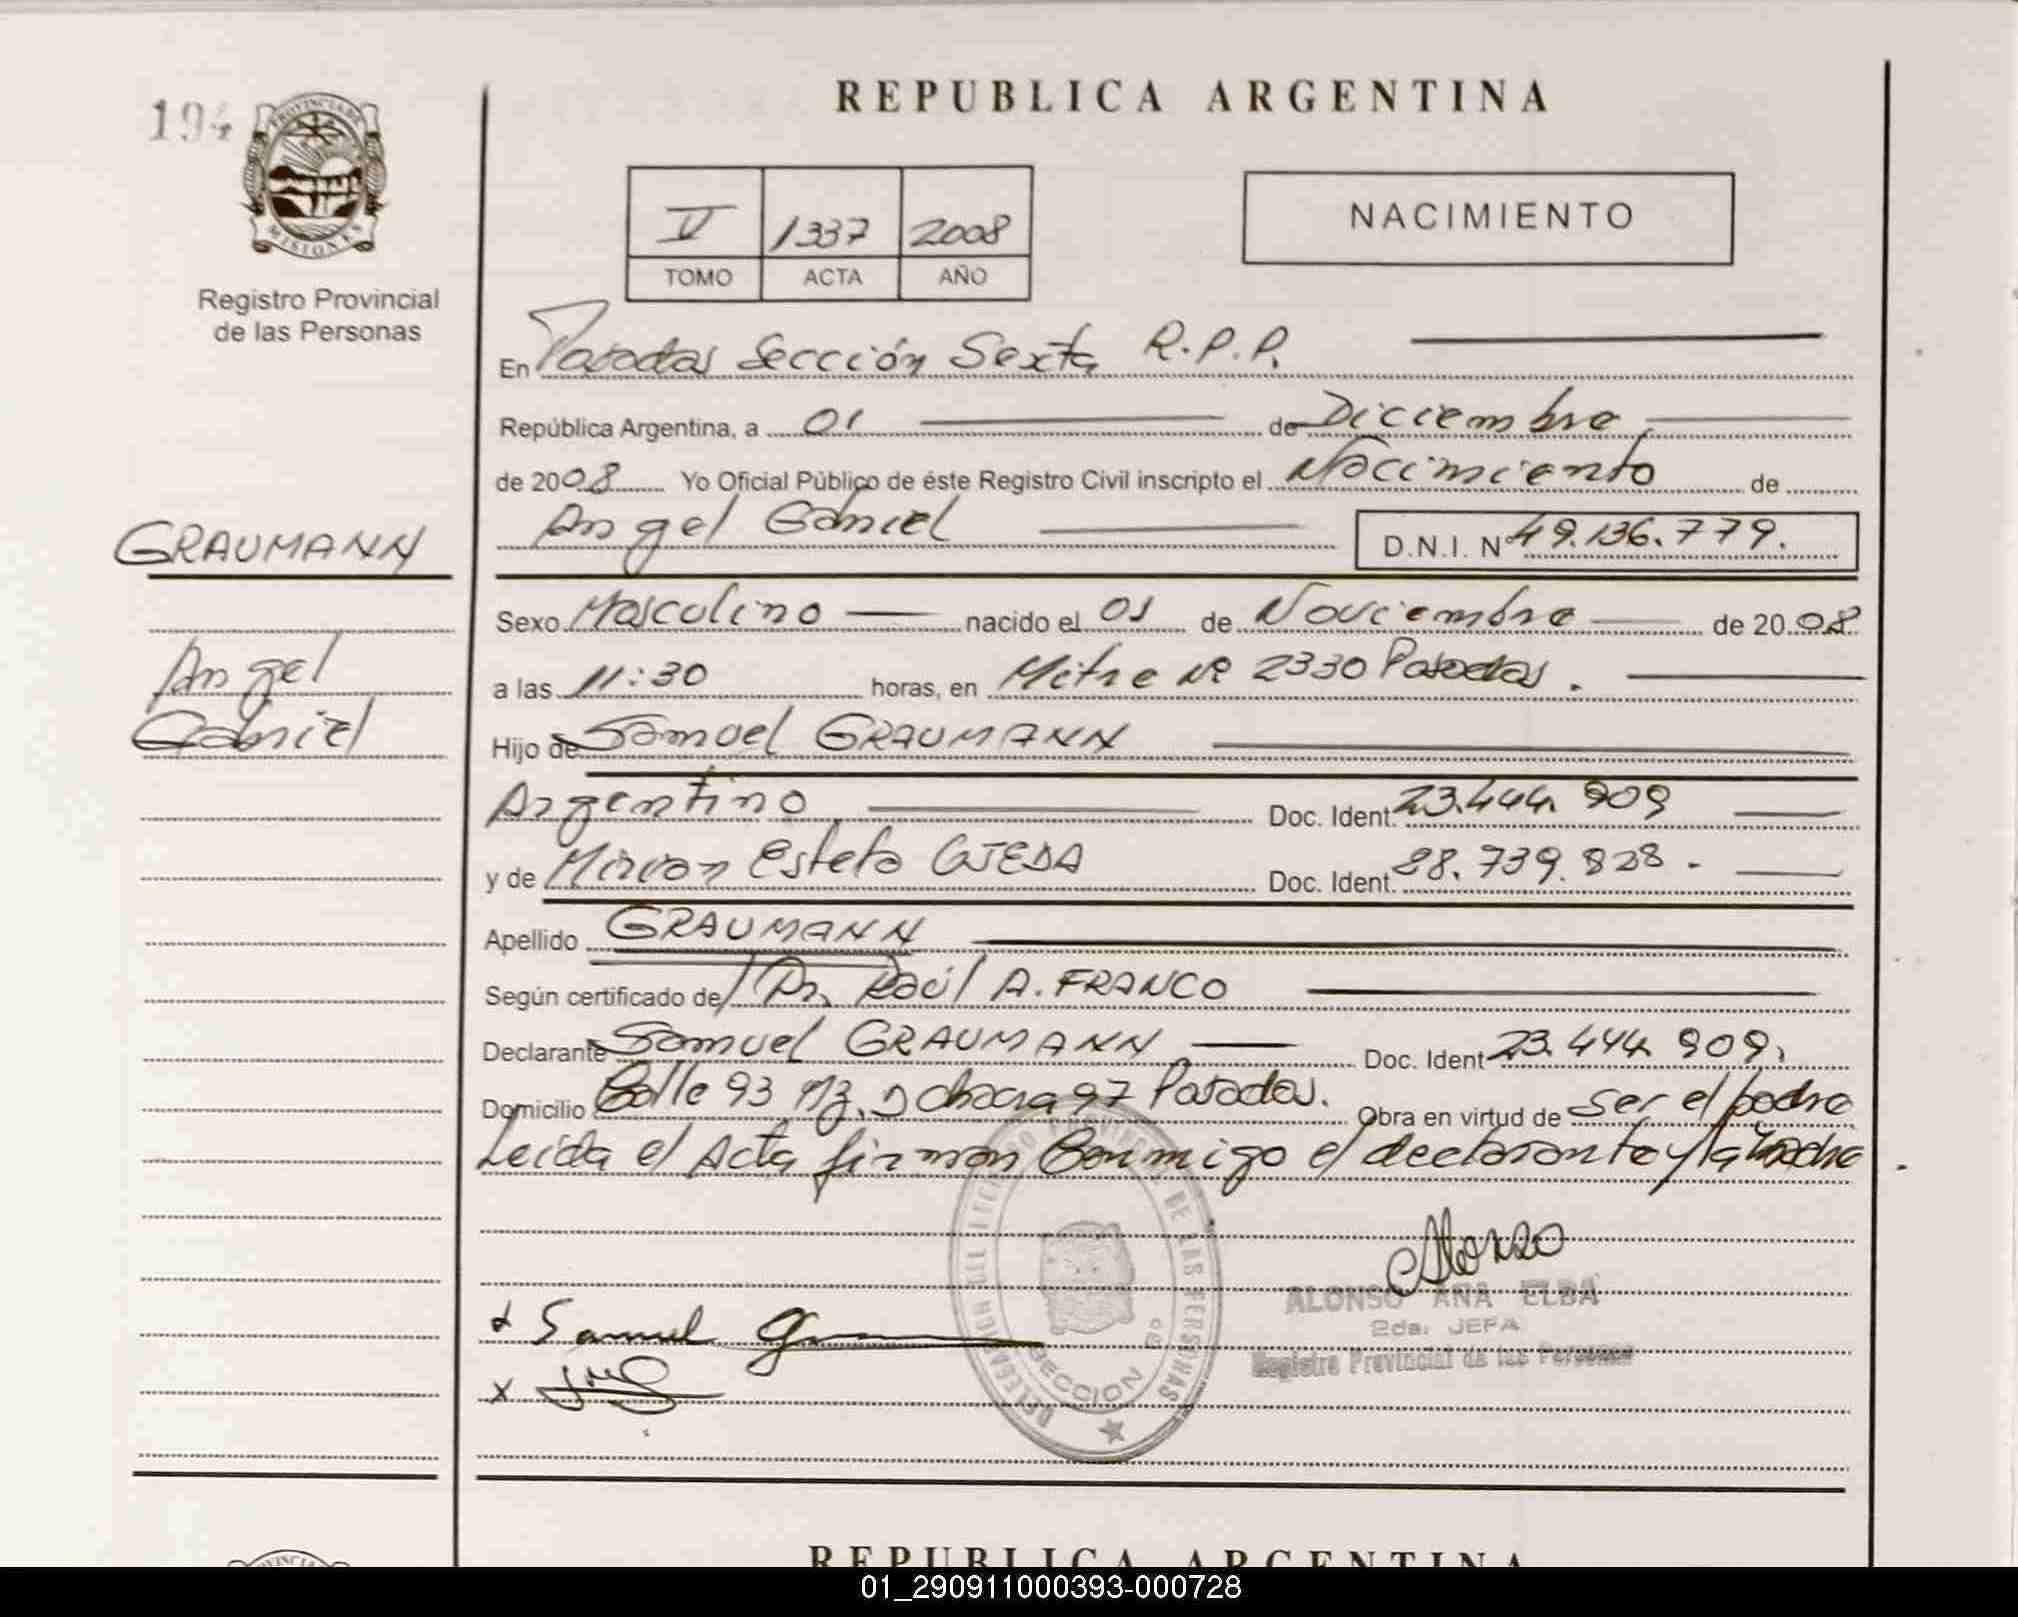 194
PROVINCIA DE
MISIONES
Registro Provincial
de las Personas
GRAUMANN
Angel
Gabriel
REPUBLICA ARGENTINA
V 1337 2008
TOMO ACTA AÑO
NACIMIENTO
En Posadas Sección Sexta R.P.P.
República Argentina, a 01 de Diciembre
de 2008 Yo Oficial Público de éste Registro Civil inscripto el Nacimiento de
Angel Gabriel D.N.I. Nº 49.136.779.
Sexo Masculino nacido el 01 de Noviembre de 2008
a las 11:30 horas, en Mitre Nº 2330 Posadas.
Hijo de Samuel GRAUMANN
Argentino Doc. Ident. 23.444.909
y de Mirian Estela OJEDA Doc. Ident. 28.739.828.-
Apellido GRAUMANN
Según certificado de Dr. Raúl A. FRANCO
Declarante Samuel GRAUMANN Doc. Ident 23.444.909.
Domicilio Calle 93 Mz. D chacra 97 Posadas. Obra en virtud de Ser el padre
Leída el Acta firman Conmigo el declarante y la Madre.
Alonso
ALONSO ANA ELBA
2da. JEFA
Registro Provincial de las Personas
DELEGACION DEL REGISTRO PROVINCIAL DE LAS PERSONAS
SECCION 6a
x Samuel
x
REPUBLICA ARGENTINA
01_290911000393-000728